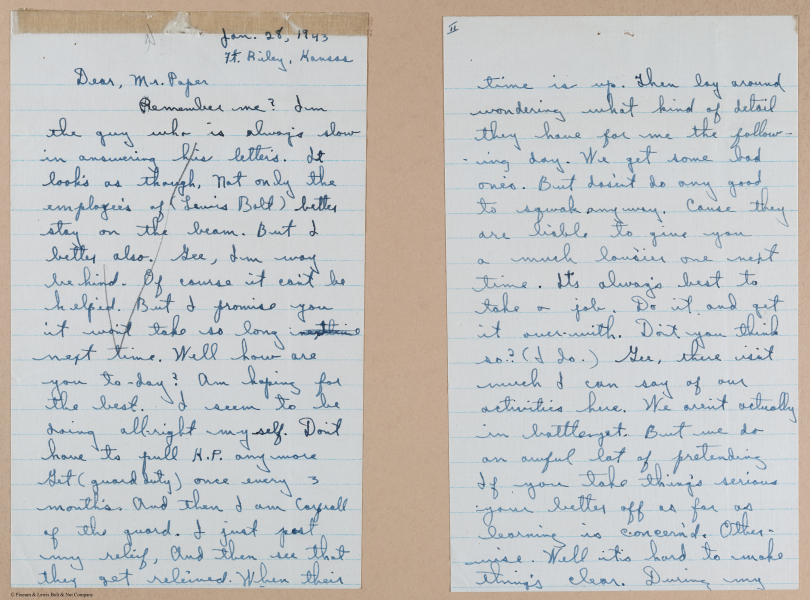 Jan. 28, 1943
Ft. Riley, Kansas
Dear, Mr. Paper
Remember me? I'm
the guy who is always slow
in answering his letters. It
look's as though, not only the
employee's of (Lewis Bolt) better
stay on the beam. But I
better also. Gee, I'm way
behind. Of course it can't be
helped. But I promise you
it won't take so long
next time. Well how are
you to-day? Am hoping for
the best. I seem to be
doing all-right my self. Don't
have to pull K.P. any more
Get (guard duty) once every 3
month's. And then I am
of the guard. I just post
my relief, And then see that
they get releived. When their
II
time is up. Then lay around
wondering what kind of detail
they have for me the follow-
ing day. We get some bad
one's. But doesn't do any good
to squak anyway. Cause they
are liable to give you
a much lousier one next
time. It's always best to
take a job. Do it and get
it over-with. Don't you think
so? (I do.) Gee, there isn't
much I can say of our
activities here. We aren't actually
in battle yet. But we do
an awful lot of pretending
If you take thing's serious
your better off as far as
learning is concern'd. Other-
wise. Well it's hard to make
thing's clear. During my
© Fineum & Lewis Bolt & Nut Company